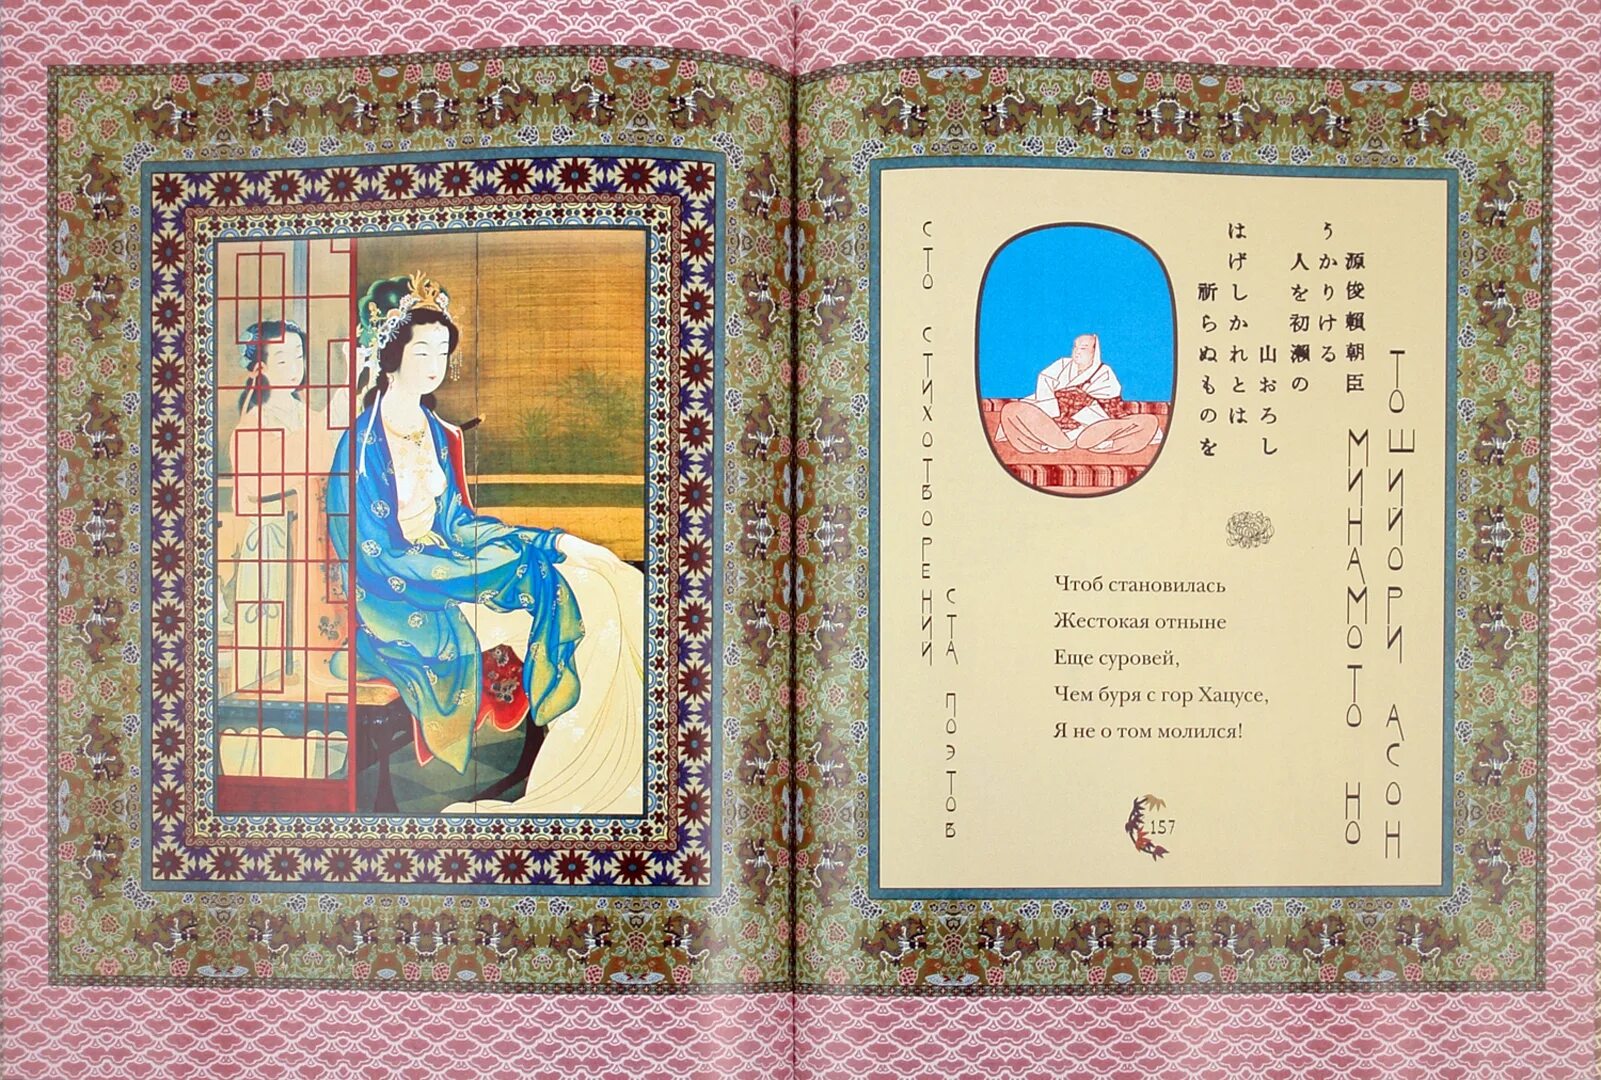 СТО СТИХОТВОРЕНИЙ
СТА ПОЭТОВ
源俊賴朝臣
うかりける
人を初瀬の
山おろし
はげしかれとは
祈らぬものを
МИНАМОТО НО
ТОШИЙОРИ АСОН
Чтоб становилась
Жестокая отныне
Еще суровей,
Чем буря с гор Хацусе,
Я не о том молился!
157